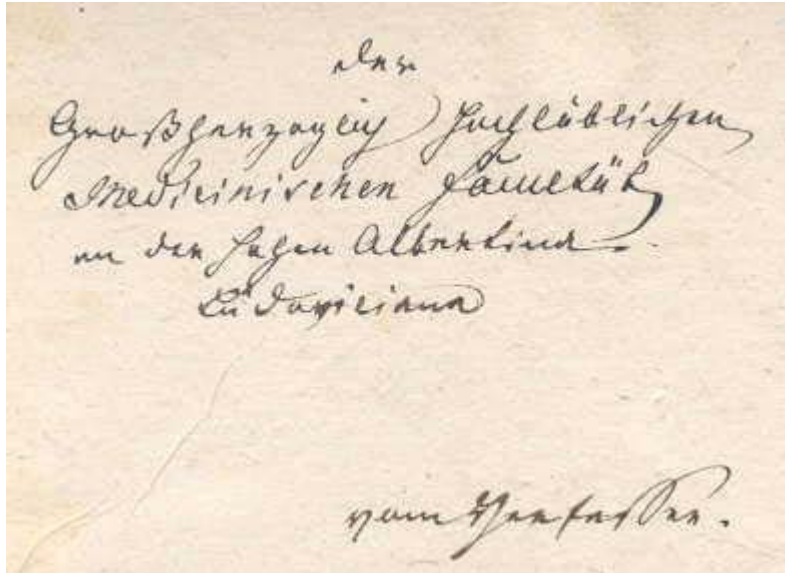 der
Großherzoglich hochlöblichen
Medicinischen Facultät
an der hohen Albertina-
Ludoviciana
vom Verfasser.